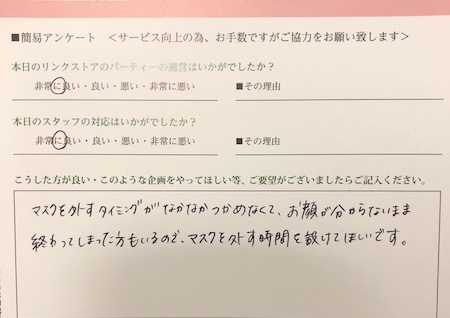 ■簡易アンケート　＜サービス向上の為、お手数ですがご協力をお願い致します＞
本日のリンクストアのパーティーの運営はいかがでしたか？
非常に良い・良い・悪い・非常に悪い　■その理由
本日のスタッフの対応はいかがでしたか？
非常に良い・良い・悪い・非常に悪い　■その理由
こうした方が良い・このような企画をやってほしい等、ご要望がございましたらご記入ください。
マスクを外すタイミングがなかなかつかめなくて、お顔が分からないまま
終わってしまった方もいるので、マスクを外す時間を設けてほしいです。